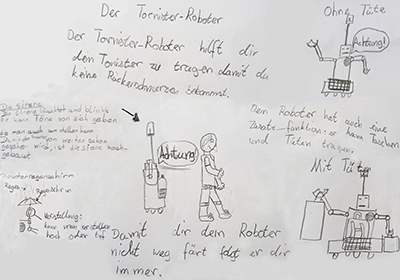 Der Tornister-Roboter
Der Tornister-Roboter hilft dir
den Tornister zu tragen damit du
keine Rückenschmerzen bekommst.
Ohne Tüte
Achtung!
Die Sirene
Die Sirene leuchtet und blinkt
Er kann Töne von sich geben
die man auch
wird, ist die Sirene hoch-
gebaut
Achtung!
Regen
Regenschirm
Vorstellung:
kann man verstellen
hoch oder tief
Dem Roboter hat auch eine
Zusatz-funktion: er kann Taschen
und Tüten tragen.
Mit Tüten
Damit dir dem Roboter
nicht weg färt folgt er dir
immer.